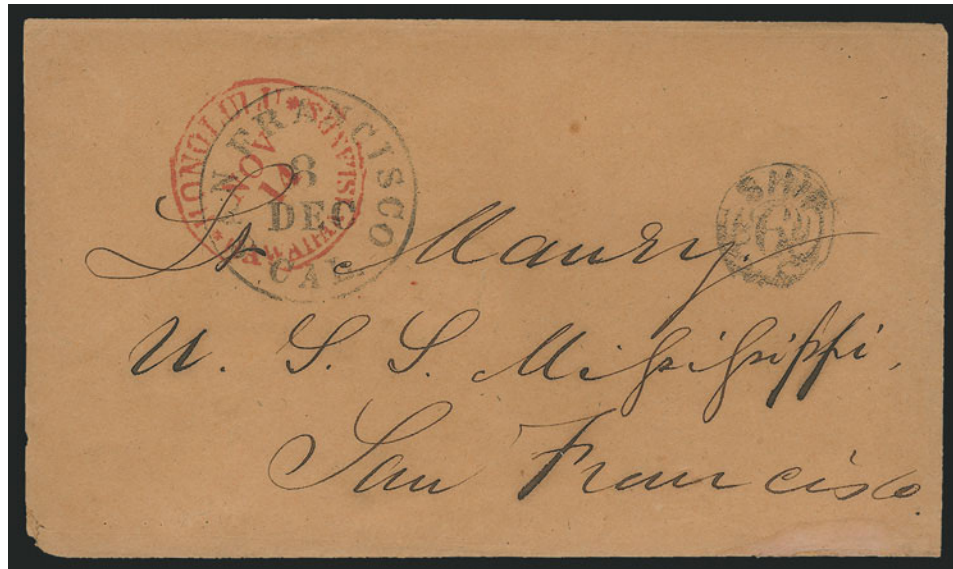 HONOLULU * U.S. POSTAGE PAID * HAWAIIAN ISLANDS
NOV
14
SAN FRANCISCO
8
DEC
CAL.
SHIP
6
Dr Maury.
U. S. S. Missisippi,
San Francisco.